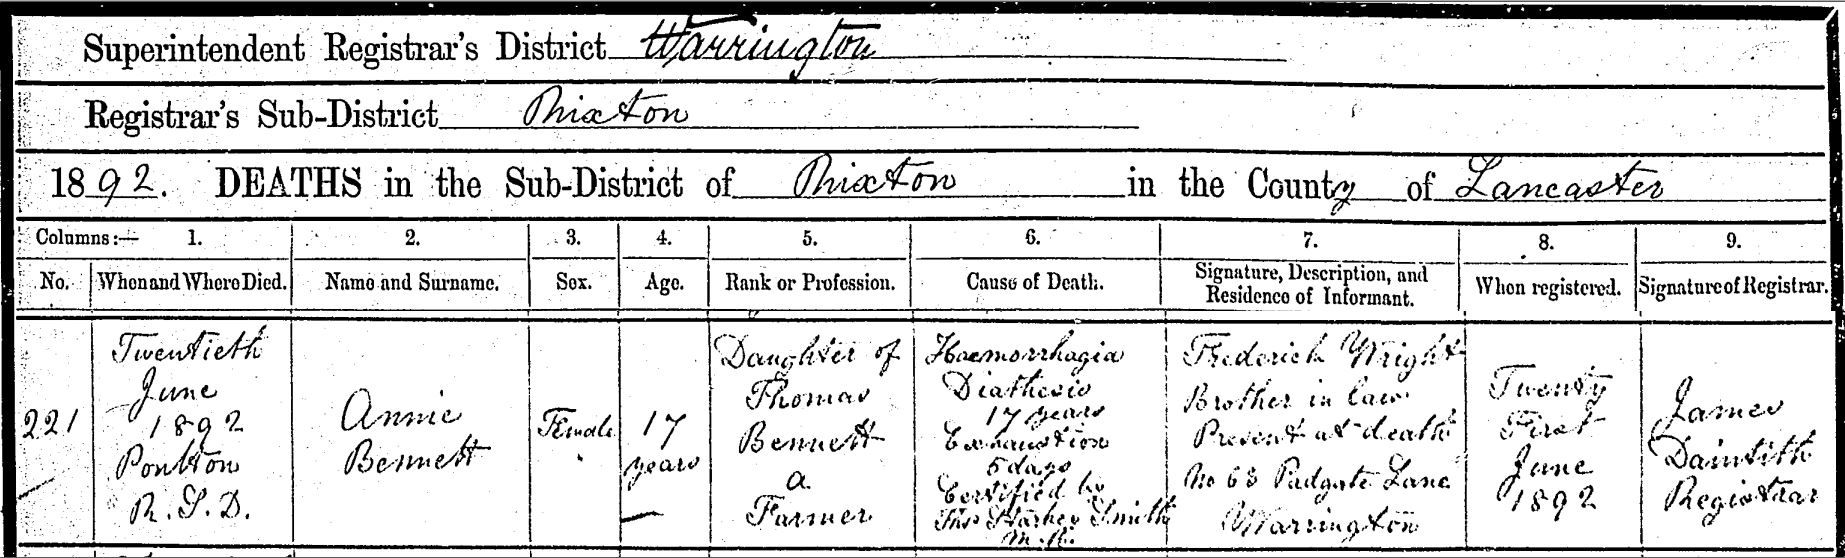 Superintendent Registrar's District Warrington
Registrar's Sub-District Rixton
1892. DEATHS in the Sub-District of Rixton in the County of Lancaster
Columns:— 1. 2. 3. 4. 5. 6. 7. 8. 9.
No. When and Where Died. Name and Surname. Sex. Age. Rank or Profession. Cause of Death. Signature, Description, and Residence of Informant. When registered. Signature of Registrar.
221
Twentieth
June
1892
Poulton
R.S.D.
Annie
Bennett
Female
17
years
Daughter of
Thomas
Bennett
a
Farmer
Haemorrhagia
Diathesis
17 years
Exhaustion
5 days
Certified by
Thos Smith
Frederick Wright
Brother in law
Present at death
No 63 Padgate Lane
Warrington
Twenty
First
June
1892
James
Daintith
Registrar